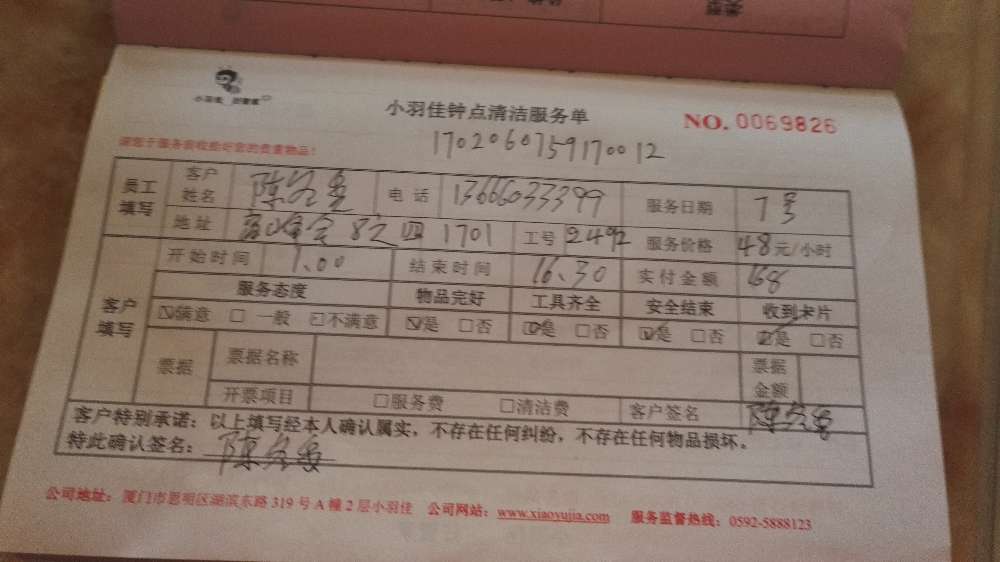 类型
小羽佳 好管家
小羽佳钟点清洁服务单
NO. 0069826
17020607591 70012
请您于服务前收捡好您的贵重物品!
员工填写 客户姓名 陈 电话 13666033399 服务日期 7号
地址 8之 1701 工号 2492 服务价格 48元/小时
客户填写 开始时间 1.00 结束时间 16.30 实付金额 168
服务态度 物品完好 工具齐全 安全结束 收到卡片
☑满意 □ 一般 □不满意 ☑是 □否 ☑是 □否 ☑是 □否 ☑是 □否
票据 票据名称 票据金额
开票项目 □服务费 □清洁费 客户签名 陈
客户特别承诺:以上填写经本人确认属实,不存在任何纠纷,不存在任何物品损坏。
特此确认签名: 陈
公司地址:厦门市思明区湖滨东路 319 号 A 幢 2 层小羽佳 公司网站:www.xiaoyujia.com 服务监督热线:0592-5888123